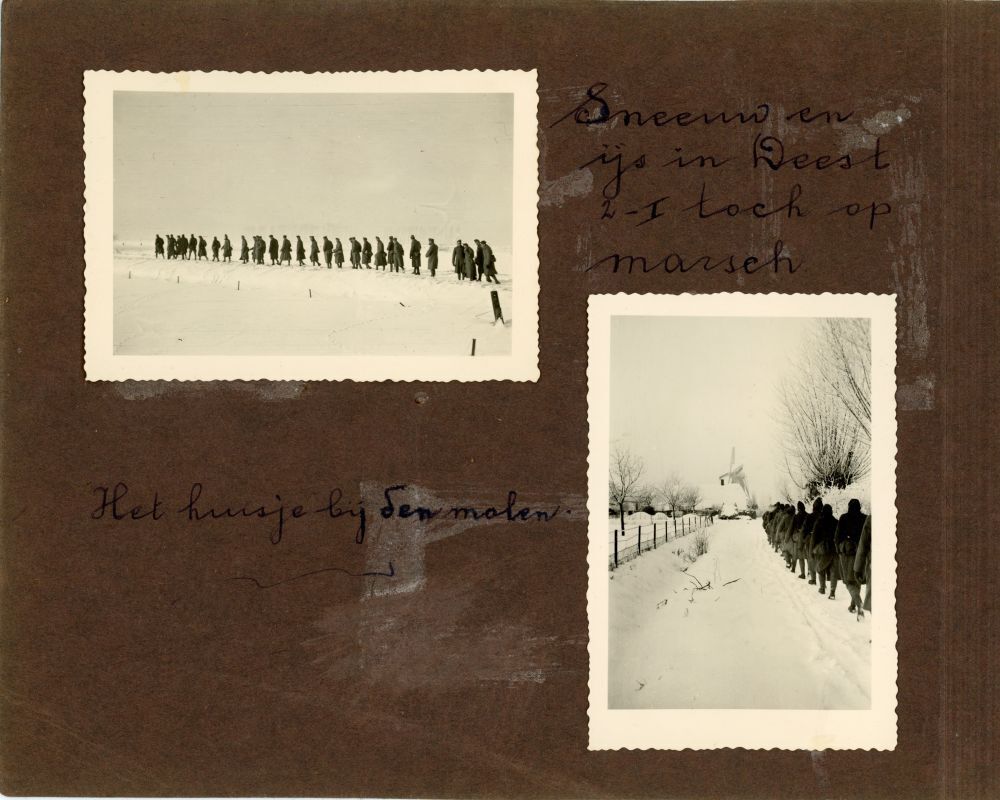 Sneeuw en
ijs in Deest
2-I toch op
marsch
Het huisje bij den molen.